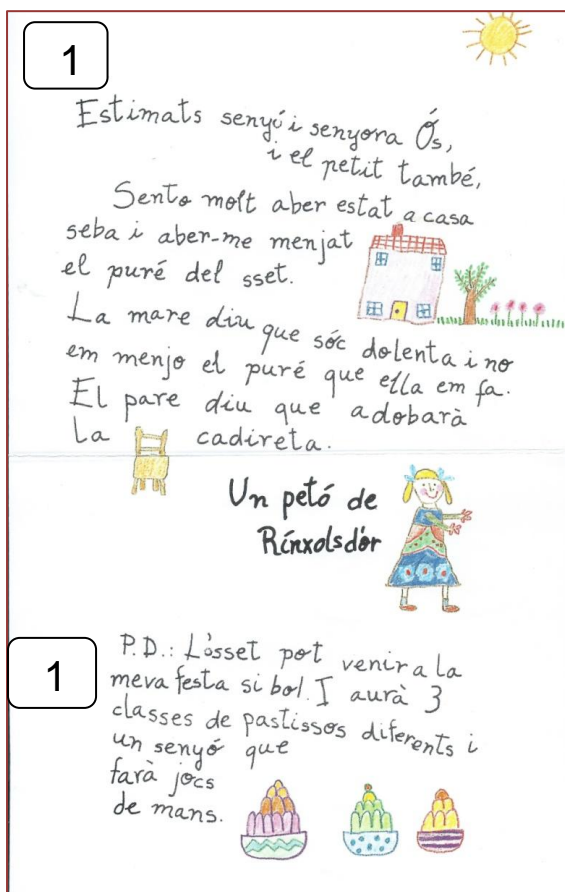 1
Estimats senyó i senyora Ós,
i el petit també,
Sento molt aber estat a casa
seba i aber-me menjat
el puré del sset.
La mare diu que sóc dolenta i no
em menjo el puré que ella em fa.
El pare diu que adobarà
la cadireta.
Un petó de
Rínxolsdòr
1
P.D.: L'òsset pot venir a la
meva festa si bol. I aurà 3
classes de pastissos diferents i
un senyó que
farà jocs
de mans.